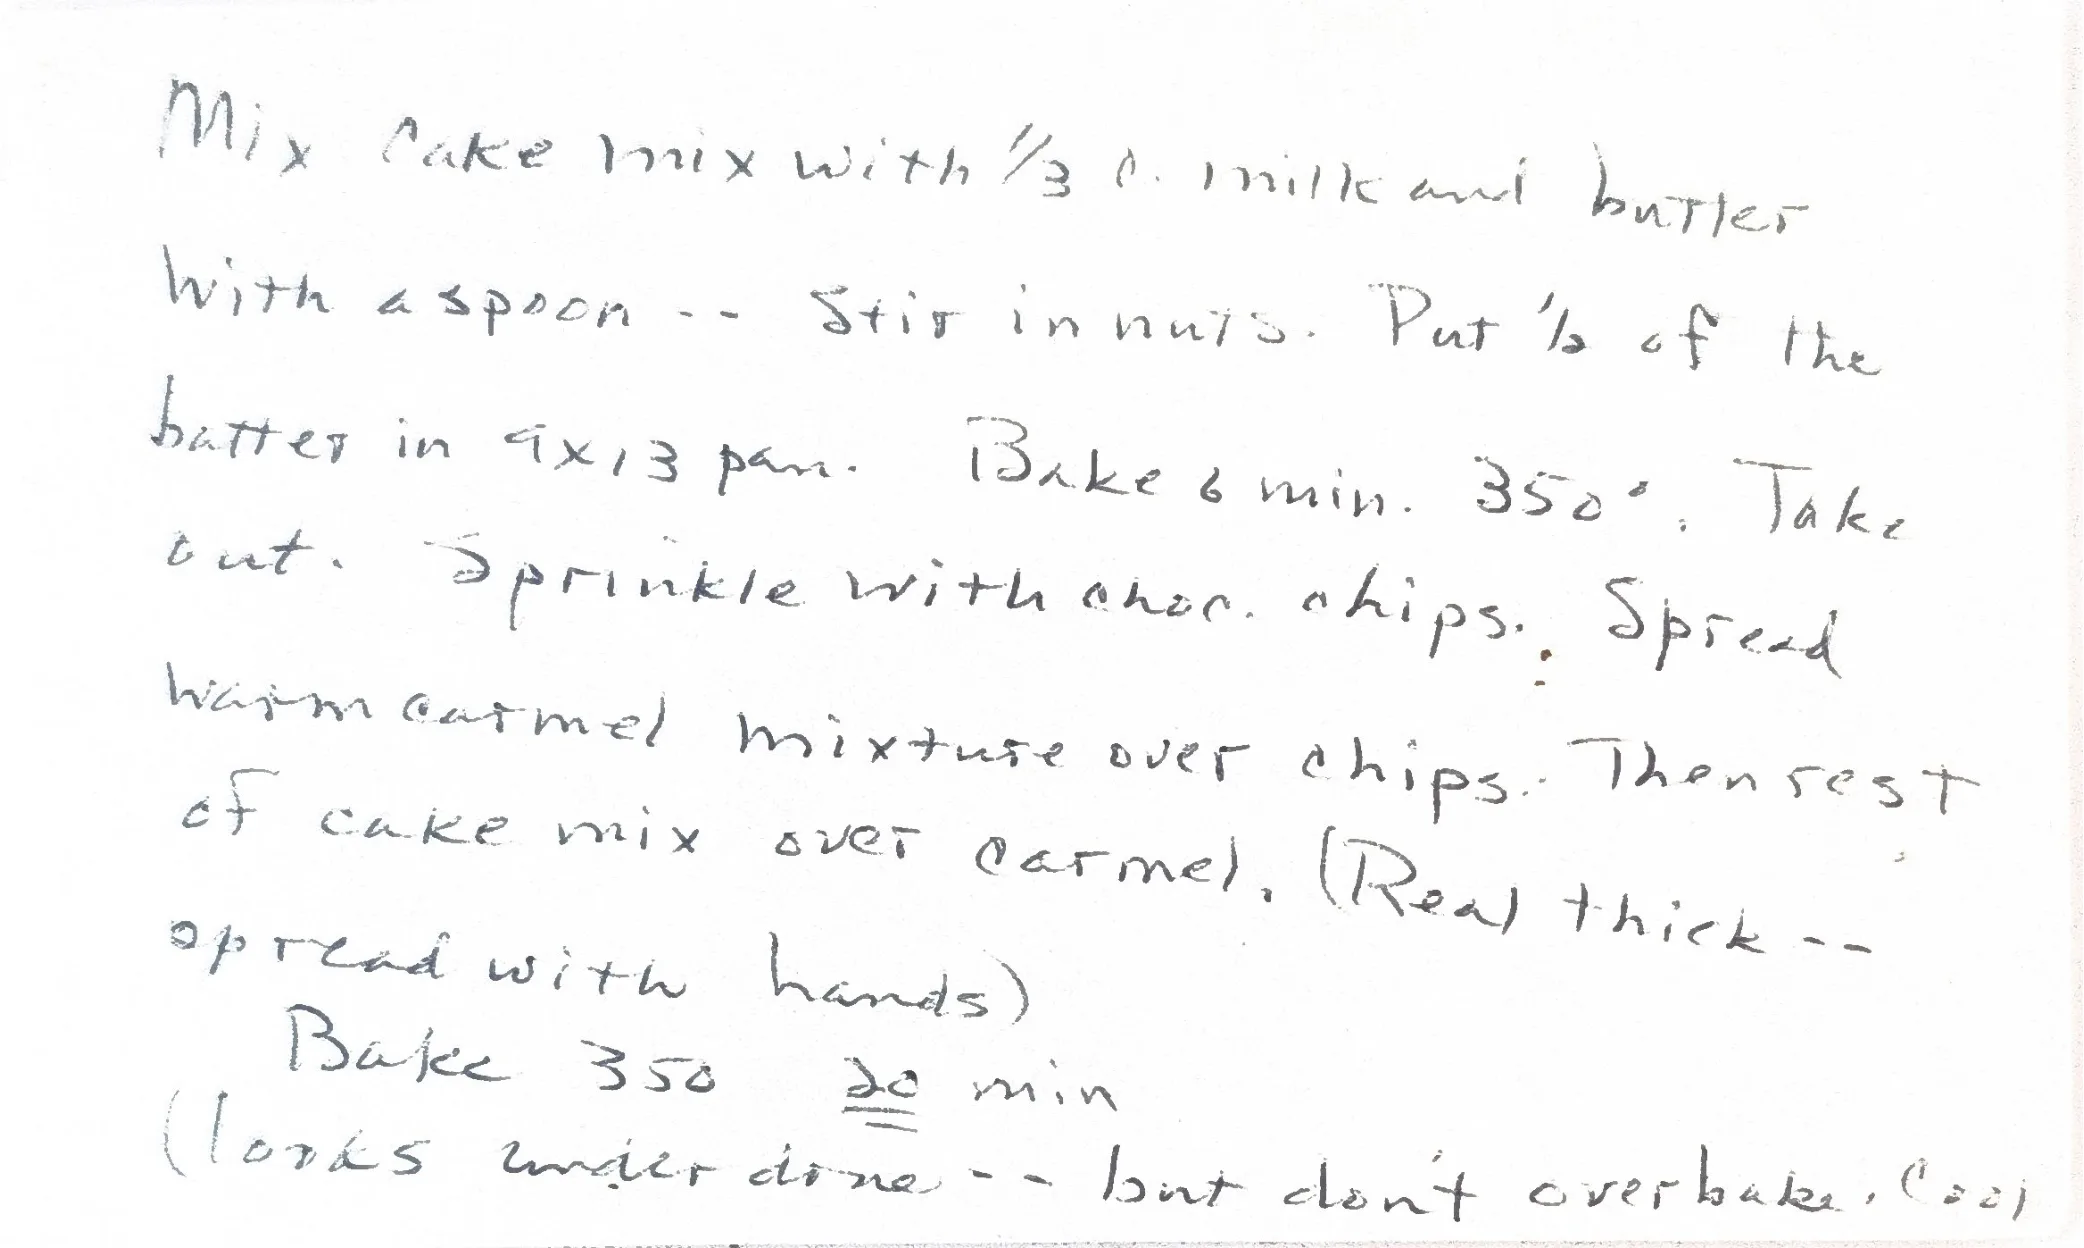 Mix cake mix with 1/3 c. milk and butter
with a spoon -- Stir in nuts. Put 1/2 of the
batter in 9x13 pan. Bake 6 min. 350°. Take
out. Sprinkle with choc. chips. Spread
warm carmel mixture over chips. Then rest
of cake mix over carmel. (Real thick --
spread with hands)
Bake 350 20 min
(looks underdone -- but don't overbake. Cool